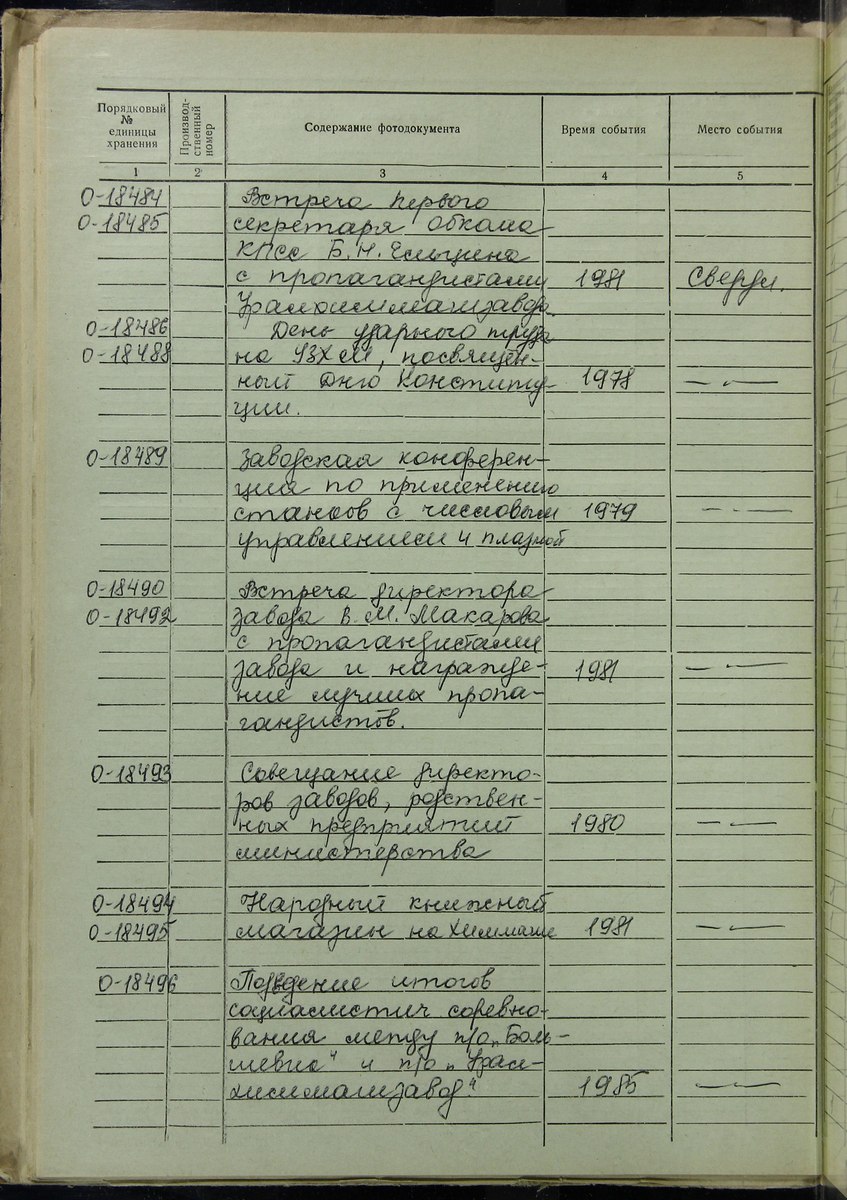 Порядковый № единицы хранения
Производ-ственный номер
Содержание фотодокумента
Время события
Место события
1 2 3 4 5
О-18484 Встреча первого
О-18485 секретаря обкома
КПСС Б.Н. Ельцина
с пропагандистами 1981 Свердл.
Уралхиммашзавода.
О-18486 День ударного труда
О-18488 на УЗХМ, посвящен-
ный Дню Конститу- 1978 —〃—
ции.
О-18489 Заводская конферен-
ция по применению
станков с числовым 1979 —〃—
управлением и плазмой
О-18490 Встреча директора
О-18492 завода В.М. Макарова
с пропагандистами
завода и награжде- 1981 —〃—
ние лучших пропа-
гандистов.
О-18493 Совещание директо-
ров заводов, родствен-
ных предприятий 1980 —〃—
министерства
О-18494 Народный книжный
О-18495 магазин на Химмаше 1981 —〃—
О-18496 Подведение итогов
социалистич соревно-
вания между п/о „Боль-
шевик" и п/о „Урал-
химмашзавод" 1985 —〃—